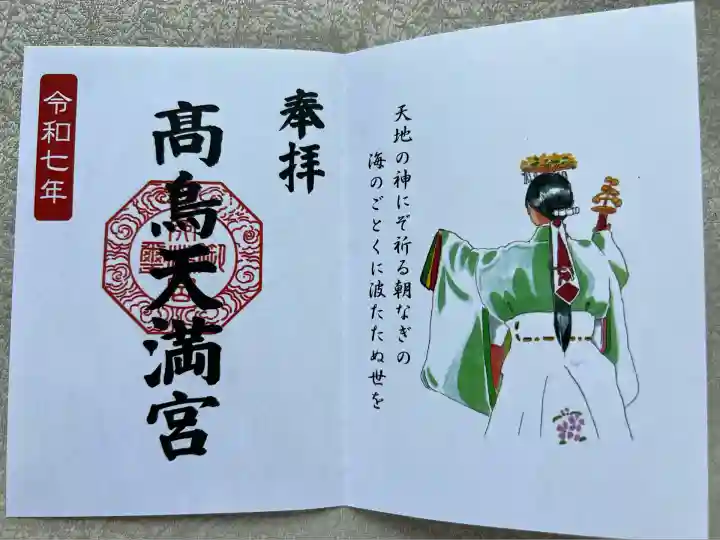 天地の神にぞ祈る朝なぎの
海のごとくに波たたぬ世を
奉拝
髙鳥天満宮
令和七年